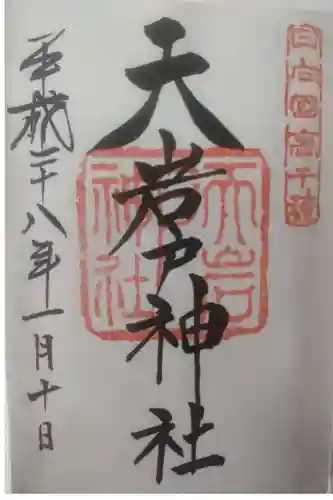 日向国高千穂
天岩戸神社
天岩戸神社
平成二十八年一月十日